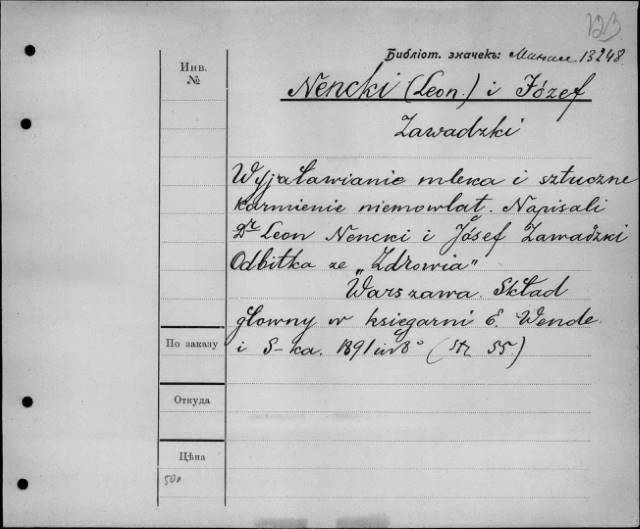 123
Библіот. значекъ: 13248.
Инв.
№
Nencki (Leon.) i Józef
Zawadzki
Wyjaławianie mleka i sztuczne
karmienie niemowląt. Napisali
Dr Leon Nencki i Józef Zawadzki
Odbitka ze „Zdrowia"
Warszawa. Skład
głowny w księgarni E. Wende
По заказу
i S-ka. 1891 in 8° (str. 55.)
Откуда
Цѣна
50